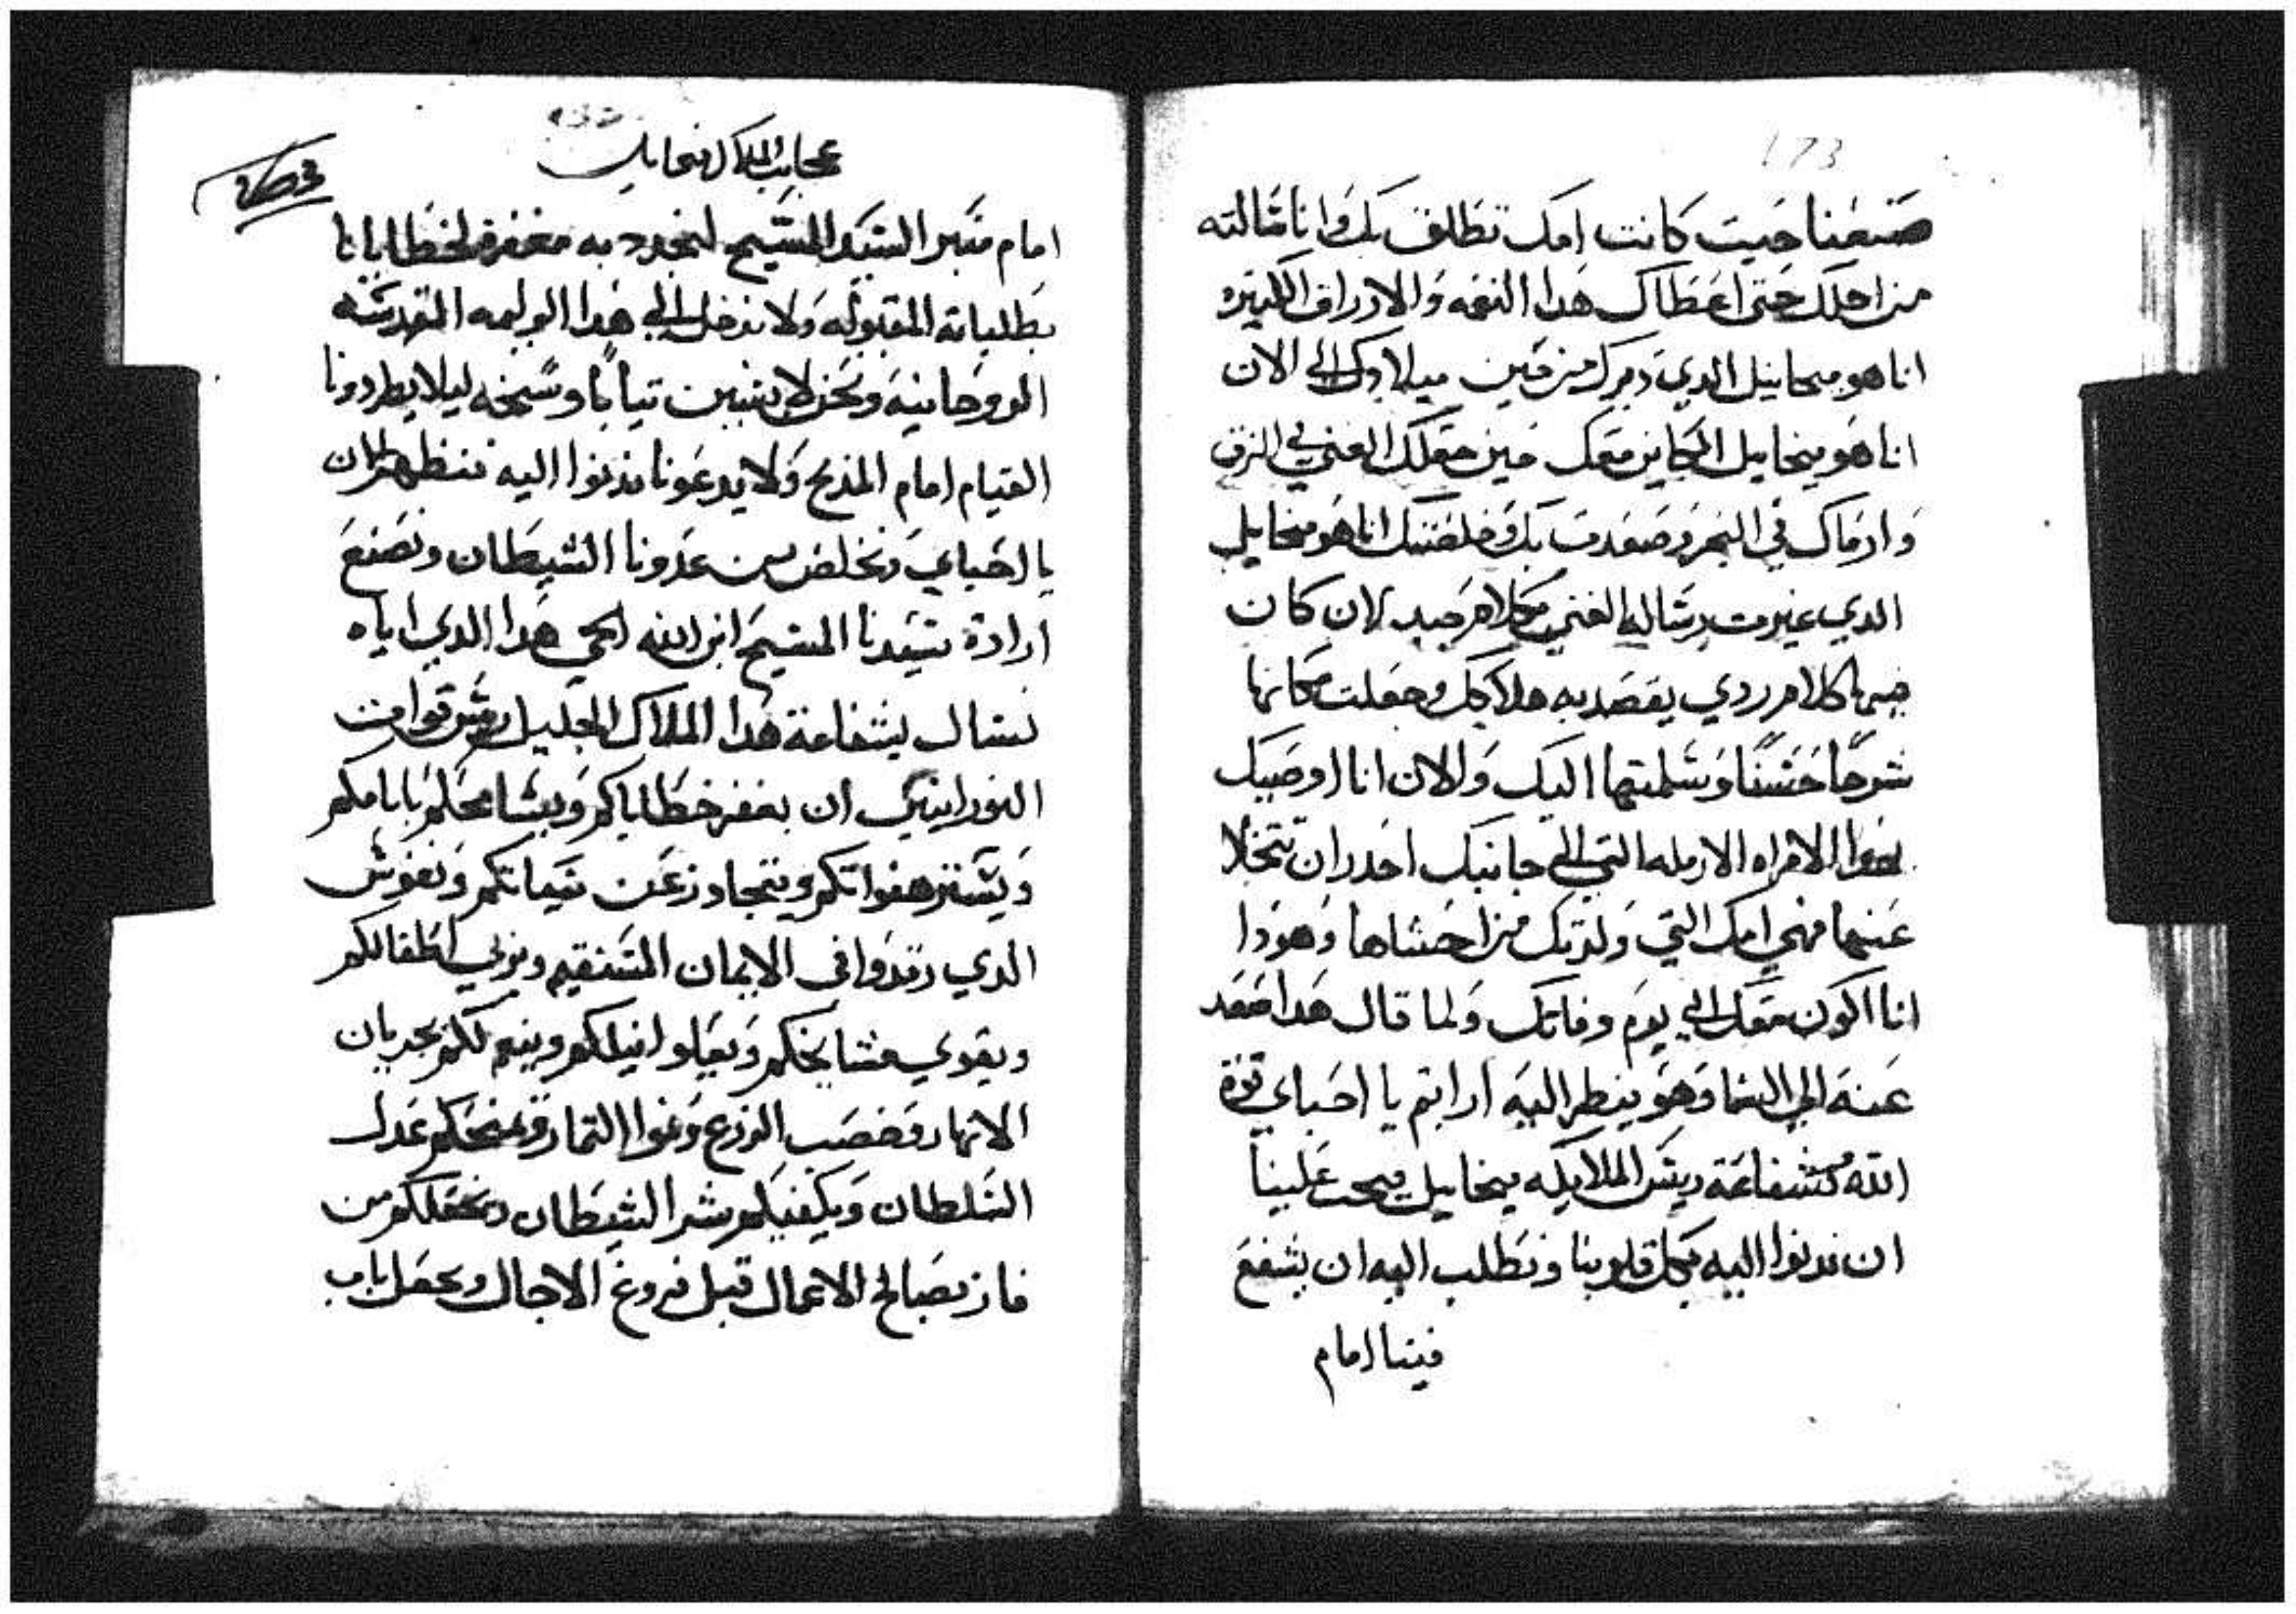 173
صنعنا حيت كانت امك تطلق بك وانا سالته
من اجلك حتى اعطاك هدا النعمه والارزاق الكتيره
انا هو ميخاييل الدي دبرك من حين ميلادك الى الان
انا هو ميخاييل الكاين معك حين جعلك الغني في الزق
وارماك في البحر وصعدت بك وخلصتك انا هو ميخاييل
الدي غيرت رسالة الغني بكلام جيد لان كان
فيها كلام ردي يقصد به هلاكك وجعلت مكانها
شرحًا حسنًا وسلمتها اليك والان انا اوصيك
بهدا الامراه الارمله التي الى جانبك احدر ان تتخلا
عنها فهي امك التي ولدتك من احشاها وهودا
انا اكون معك الى يوم وفاتك ولما قال هدا صعد
عنه الي السما وهو ينظر اليه ارايتم يا احباي قوة
الله وشفاعة رييس الملايكه ميخاييل فيجب علينا
ان ندنوا اليه بكل قلوبنا ونطلب اليه ان يشفع
فينا امام
عجايب الملاك ميخاييل
امام منبر السيد المسيح لنجدد به مغفرة لخطايانا
بطلباته المقبوله ولا ندخل الى هدا الوليمه المقدسه
الروحانيه ونحن لابسين تيابًا وسخه ليلا يطردونا
القيام امام المذبح ولا يدعونا ندنوا اليه نتطهر الان
يا احباي ونخلص من عدونا الشيطان ونصنع
ارادة سيدنا المسيح ابن الله الحي هدا الدي اياه
نسال بشفاعة هدا الملاك الجليل رييس قوات
النورانيين ان يغفر خطاياكم ويسامحكم باتامكم
ويستر هفواتكم ويتجاوز عن سياتكم ونفوس
الدي رقدوا في الايمان المستقيم ويربي اطفالكم
ويقوي مشايخكم ويعلو نيلكم وينعم لكم بجريان
الانهار وخصب الزرع ونموا التمار ويمنحكم عدل
السلطان ويكفيكم شر الشيطان ويجعلكم من
فاز بصالح الاعمال قبل فروغ الاجال ويجعل باب